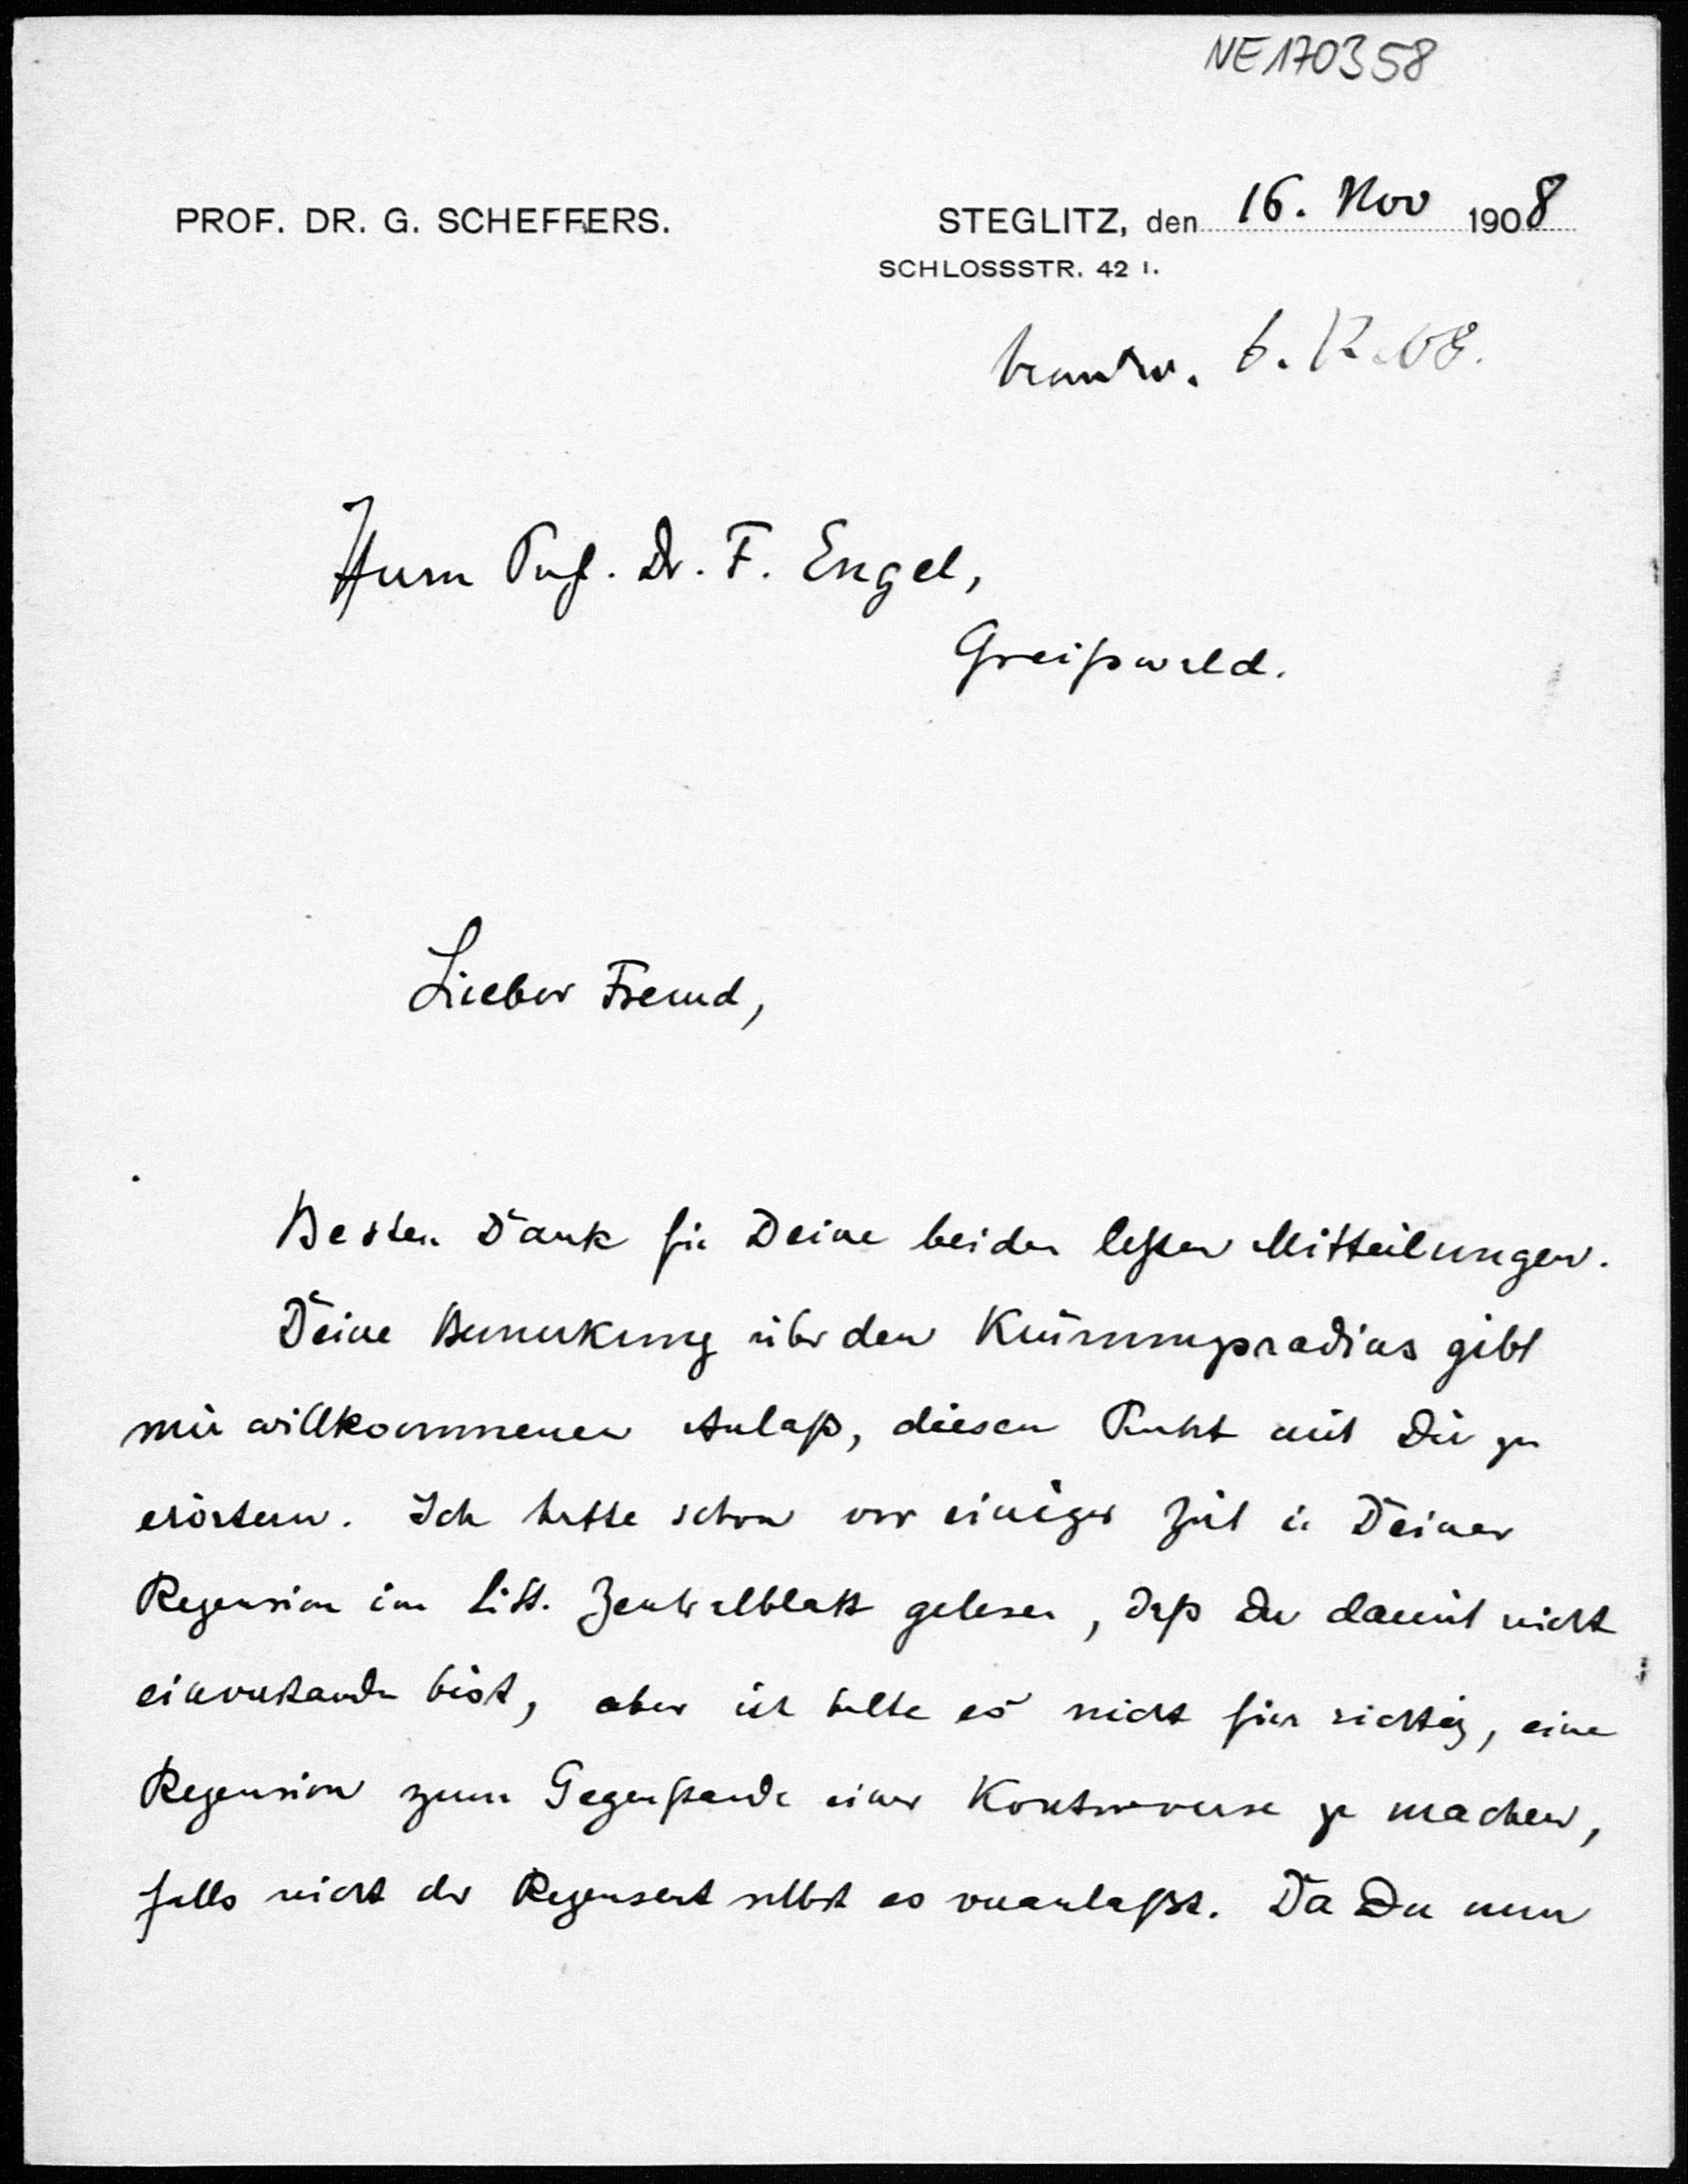 NE170358
PROF. DR. G. SCHEFFERS.
STEGLITZ, den 16. Nov 1908
SCHLOSSSTR. 42 I.
beantw. 6. 12. 08.
Herrn Prof. Dr. F. Engel,
Greifswald.
Lieber Freund,
Besten Dank für Deine beiden letzten Mitteilungen.
Deine Bemerkung über den Krümmungsradius gibt
mir willkommenen Anlaß, diesen Punkt mit Dir zu
erörtern. Ich hatte schon vor einiger Zeit in Deiner
Rezension im Litt. Zentralblatt gelesen, daß Du damit nicht
einverstanden bist, aber ich halte es nicht für richtig, eine
Rezension zum Gegenstande einer Kontroverse zu machen,
falls nicht der Rezensent selbst es veranlaßt. Da Du nun